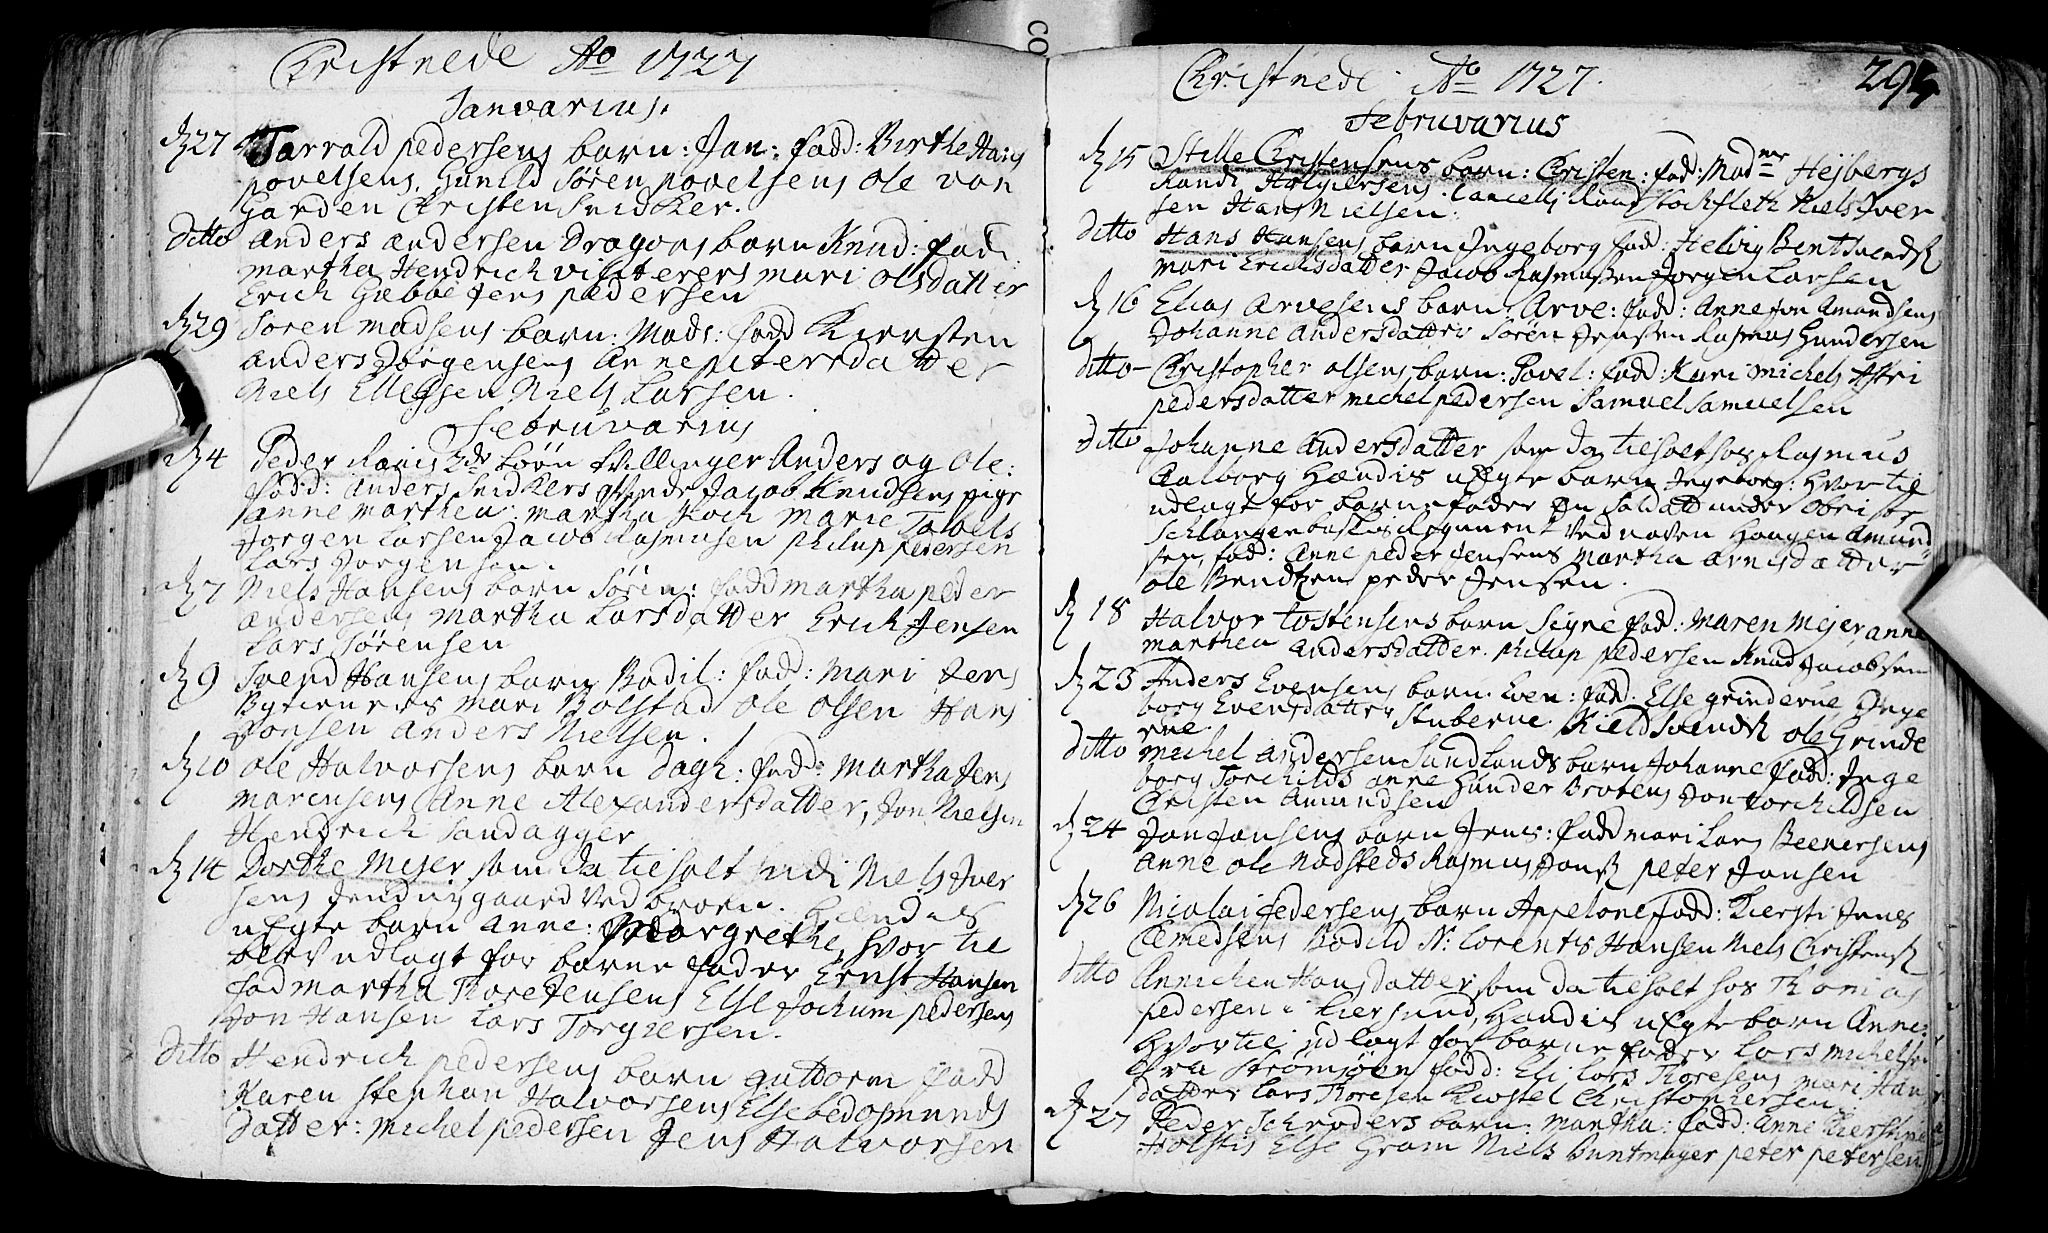 Christnede Ao 1727
Januarius.
D 27 Tarrald pedersens barn: Jan: fadd: Birthe Hans
povelsens, Gunild Søren povelsens Ole von
Garden Christen Snidker.
Ditto Anders Andersen Dragons barn Knud: fad:
martha Hendrich visiterers mari olsdatter
Erich Gæbbe Jens pedersen
D 29 Søren madsens barn: Mads: fadd Kiersten
Anders Jörgensens Anne piterrdatter
Niels Ellefsen Niels Larsen.
Februvarius
D 4 Peder Ravis 2de börn tvillinger Anders og Ole:
fadd: Anders Snidkers Jacob Knudsens pige
Anne marthea: martha Koch marie Tabels
Jorgen Larsen Jacob Rasmusen philup pedersen
Lars Jorgensen.
D 7 Niels Hansens barn Sören: fadd martha peder
andersens martha Larsdatter Erich Jensen
Lars Sörensen
D 9 Svend Hansens barn Bodil: fad: mari Jens
Bytieners mari Bolstad Ole Olsen Hans
Jonsen Anders Nielsen.
D 10 Ole Halvorsens barn Dagh: fadd: Martha Jens
marensens Anne Alexandersdatter, Jon Nielsen
Hendrich Sandagger
D 14 Dorthe Mejer som da tilholt udi Niels Iver
sens ved broen. Hendis
uEgte barn Anne: Margrethe, hvor til
blev udlagt for barne fader Ernst Hansen
fad martha Thore Jensens Else Jochum pedersens
Jon Hansen Lars Torgiersen.
Ditto Hendrich pedersens barn guttorm fadd
Karen Stephan Halvorsens Else bedosmunds
datter: Michel pedersen Jens Halvorsen
Christnede Ao 1727.
Februvarius
D 15 Stille Christensens barn: Christen: fad: Madmr Hejbergs
Randi Holgiersens: Cancellj Raad Stockfleth Niels Iver
sen Hans Nielsen:
Ditto Hans Hansens barn Ingeborg fad: Helvig Bent Svends
mari Erichsdatter Jacob Rasmussen Jorgen Larsen
D 16 Elias Arvesens barn: Arve: fadd: Anne Jon Amundsens
Johanne Andersdatter Sörön Jensen Rasmus Gundersen
Ditto Christopher olsens barn: Povel: fadd: Kari michels Astri
pedersdatter michel pedersen Samuel Samuelsen
Ditto Johanne Andersdatter som da tilholt hos Rasmus
Aalborg Hendis uEgte barn Ingeborg: Hvor til
udlagt for barnefader En Soldatt under Obrister
Regiment ved naven Haagen Amund
sen, fadd: Anne peder Jensens Martha Arnisdatter
Ole Bendtzen peder Jensen.
D 18 Halvor Tostensens barn Signe fad: Maren Mejer Anne
marthea Andersdatter. philup pedersen Knud Jacobsen
D 23 Anders Evensens barn: Even: fad: Else grinderue Inge
borg Evensdatter Stuberne. Kield Svends ole Grinde
rue.
Ditto Michel Andersen Sandlands barn Johanne fadd: Inge
borg Torchilds anne Gunder Brotens Jon torchildsen
Christen Amundsen
D 24 Jon Jansens barn Jens: fadd mari Lars Beenersens
Anne ole Rasmus peter Jansen
D 26 Nicolai Federsens barn Appelone fadd: Kiersti Jens
Clemedsens Bodild N: Lorents Hansen Niels Christens
Ditto Annichen Hansdatter som da tilholt hos Thomas
pedersen i Kiersund, Handis uEgte barn Anne:
Hvor til udlagt for barnefader Lars michelsen
fra Strömsöen fadd: Eli Lars Thoresens mari Han
datter Lars Thoresen Christophersen.
D 27 Peder Schröders barn: martha: fadd: Anne Kierstine
Holstis Else Gram Niels Buntmager peter petersen